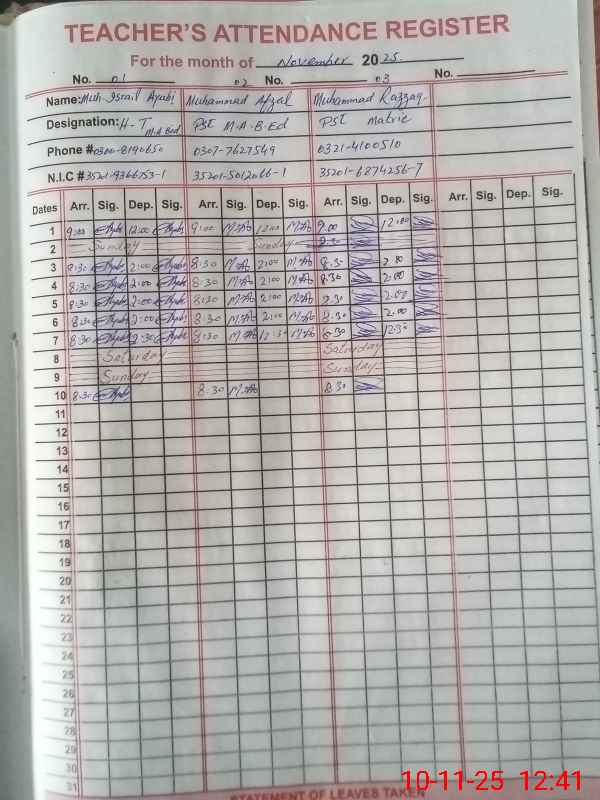 TEACHER'S ATTENDANCE REGISTER
For the month of November 2025.
No. 01 02 No. 03 No.
Name: Muh. Israil Ayabi Muhammad Afzal Muhammad Razzaq
Designation: H-T M.A Bed PST M.A.B.Ed PST Matric
Phone # 0300-8190650 0307-7627549 0321-4100510
N.I.C # 35201-9366753-1 35201-5012066-1 35201-6874256-7
Dates Arr. Sig. Dep. Sig. Arr. Sig. Dep. Sig. Arr. Sig. Dep. Sig. Arr. Sig. Dep. Sig.
1 9:00 12:00 9:00 M.Ab 12:00 M.Ab 9.00 12.00
2 Sunday Sunday 8.30
3 8:30 2:00 8:30 M.Ab 2:00 M.Ab 8.30 2.00
4 8:30 2:00 8:30 M.Ab 2:00 M.Ab 8.30 2.00
5 8:30 2:00 8:30 M.Ab 2:00 M.Ab 8.30 2.00
6 8:30 2:00 8:30 M.Ab 2:00 M.Ab 8.30 2.00
7 8:30 8:30 M.Ab 12:30 M.Ab 8.30 12.30
8 Saturday Saturday
9 Sunday Sunday
10 8.30 8.30 M.Ab 8.30
11
12
13
14
15
16
17
18
19
20
21
22
23
24
25
26
27
28
29
30
31
STATEMENT OF LEAVES TAKEN
10-11-25 12:41